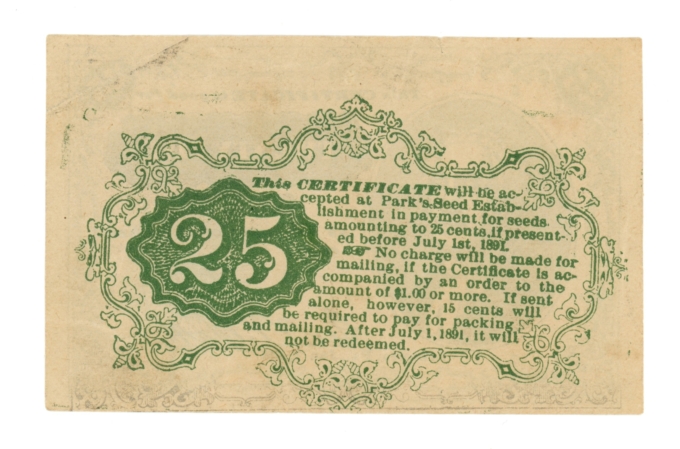 25
This CERTIFICATE will be ac-
cepted at Park's Seed Estab-
lishment in payment for seeds
amounting to 25 cents, if present-
ed before July 1st, 1891.
☞ No charge will be made for
mailing, if the Certificate is ac-
companied by an order to the
amount of $1.00 or more. If sent
alone, however, 15 cents will
be required to pay for packing
and mailing. After July 1, 1891, it will
not be redeemed.